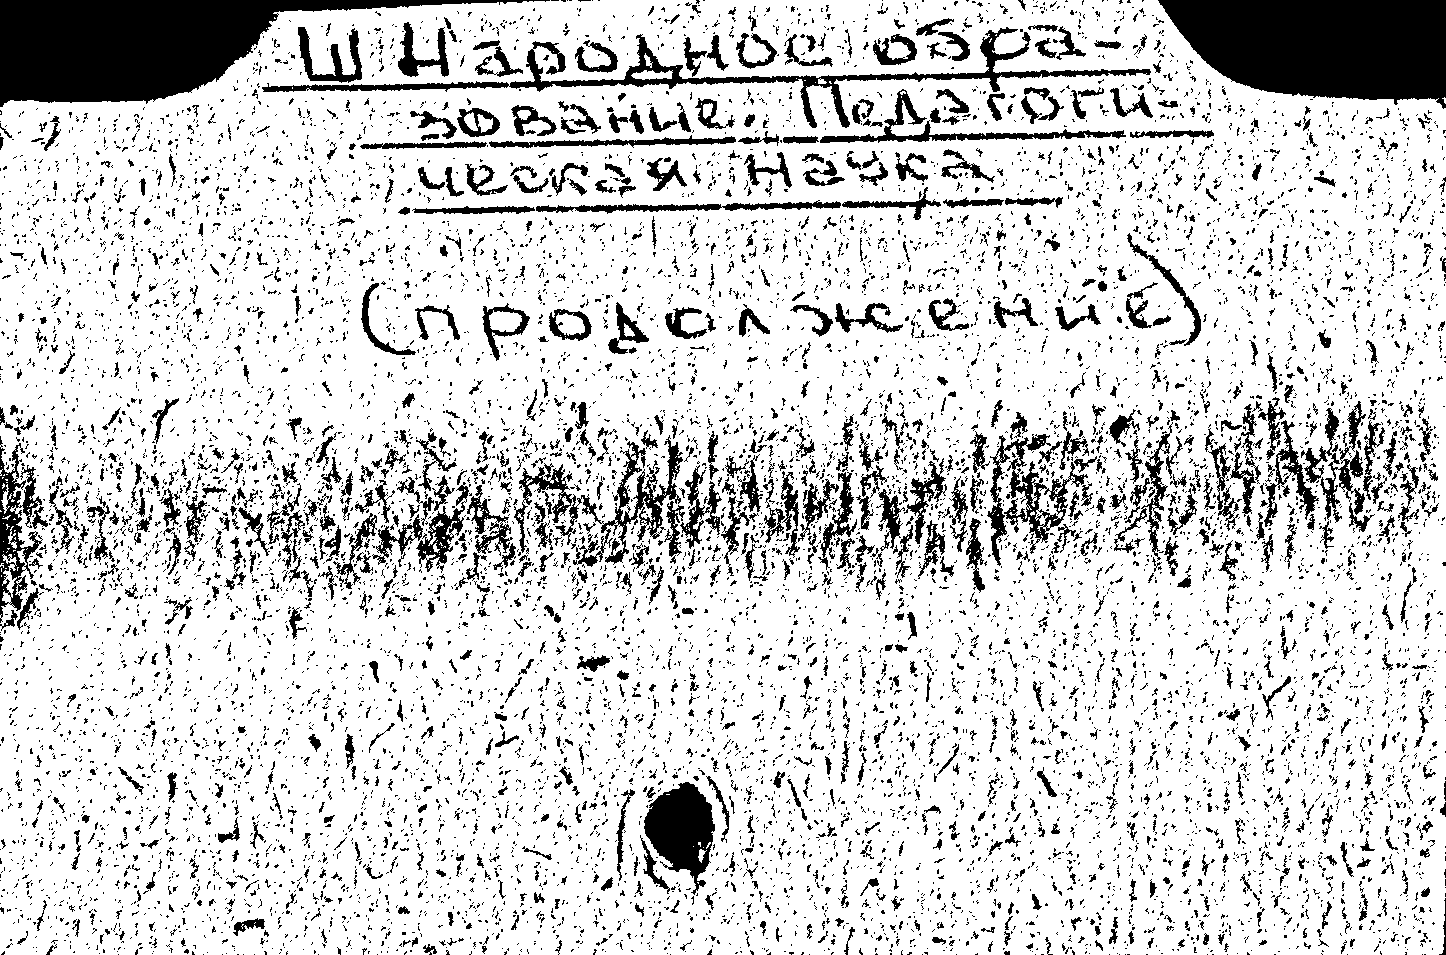 Ш Народное обра-
зование. Педагоги-
ческая наука
(продолжение)